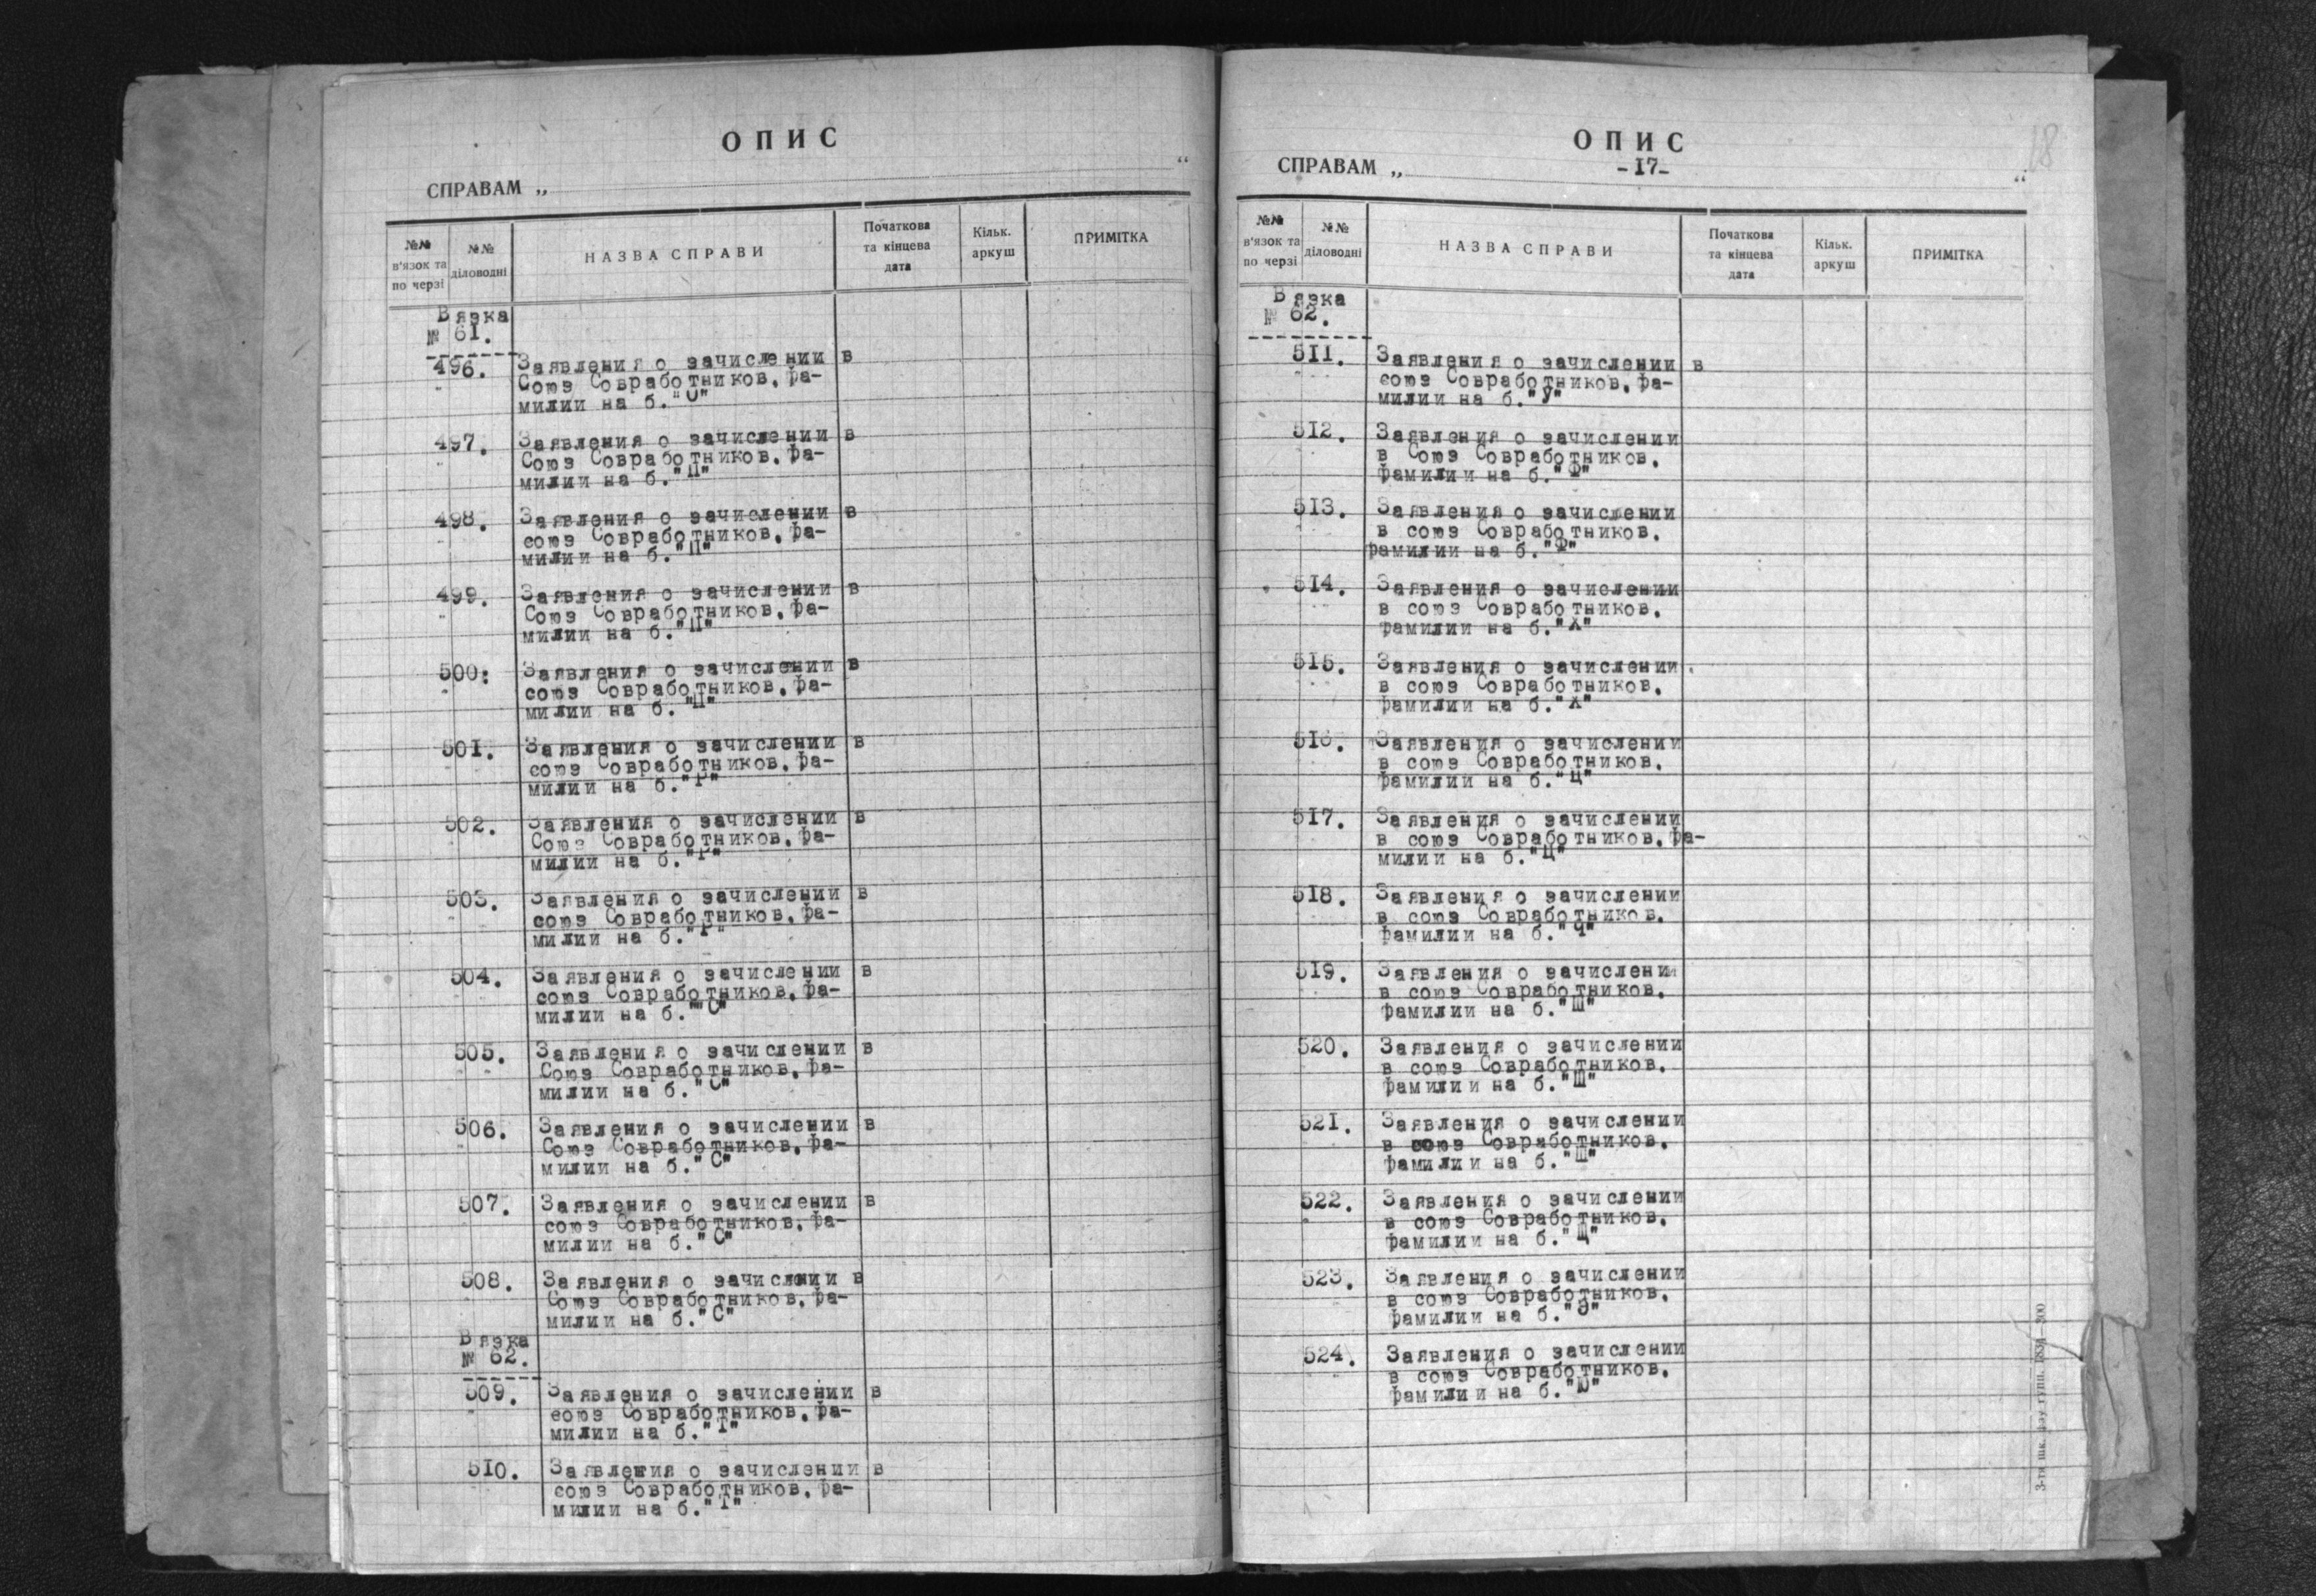 ОПИС
СПРАВАМ „ “
№№ в'язок та по черзі
№№ діловодні
НАЗВА СПРАВИ
Початкова та кінцева дата
Кільк. аркуш
ПРИМІТКА
Вязка
№ 61.
496. Заявления о зачислении в
Союз Совработников, фа-
милии на б."О"
497. Заявления о зачислении в
Союз Совработников, фа-
милии на б."П"
498. Заявления о зачислении в
союз Совработников, фа-
милии на б."П"
499. Заявления о зачислении в
Союз Совработников, фа-
милии на б."П"
500: Заявления о зачислении в
союз Совработников, фа-
милии на б."П"
501. Заявления о зачислении в
союз Совработников, фа-
милии на б."Р"
502. Заявления о зачислении в
Союз Совработников, фа-
милии на б."Р"
503. Заявления о зачислении в
союз Совработников, фа-
милии на б."Р"
504. Заявления о зачислении в
союз Совработников, фа-
милии на б."С"
505. Заявления о зачислении в
Союз Совработников, фа-
милии на б."С"
506. Заявления о зачислении в
Союз Совработников, фа-
милии на б."С"
507. Заявления о зачислении в
союз Совработников, фа-
милии на б."С"
508. Заявления о зачислении в
Союз Совработников, фа-
милии на б."С"
Вязка
№ 62.
509. Заявления о зачислении в
союз Совработников, фа-
милии на б."Т"
510. Заявления о зачислении в
союз Совработников, фа-
милии на б."Т"
18
ОПИС
СПРАВАМ „ -17- “
№№ в'язок та по черзі
№№ діловодні
НАЗВА СПРАВИ
Початкова та кінцева дата
Кільк. аркуш
ПРИМІТКА
Вязка
№ 62.
511. Заявления о зачислении в
союз Совработников, фа-
милии на б."У"
512. Заявления о зачислении
в Союз Совработников,
фамилии на б."Ф"
513. Заявления о зачислении
в союз Совработников,
фамилии на б."Ф"
514. Заявления о зачислении
в союз Совработников,
фамилии на б."Х"
515. Заявления о зачислении
в союз Совработников,
фамилии на б."Х"
516. Заявления о зачислении
в союз Совработников,
фамилии на б."Ц"
517. Заявления о зачислении
в союз Совработников, фа-
милии на б."Ц"
518. Заявления о зачислении
в союз Совработников,
фамилии на б."Ч"
519. Заявления о зачислении
в союз Совработников,
фамилии на б."Ш"
520. Заявления о зачислении
в союз Совработников,
фамилии на б."Ш"
521. Заявления о зачислении
в союз Совработников,
фамилии на б."Ш"
522. Заявления о зачислении
в союз Совработников,
фамилии на б."Щ"
523. Заявления о зачислении
в союз Совработников,
фамилии на б."Э"
524. Заявления о зачислении
в союз Совработников,
фамилии на б."Ю"